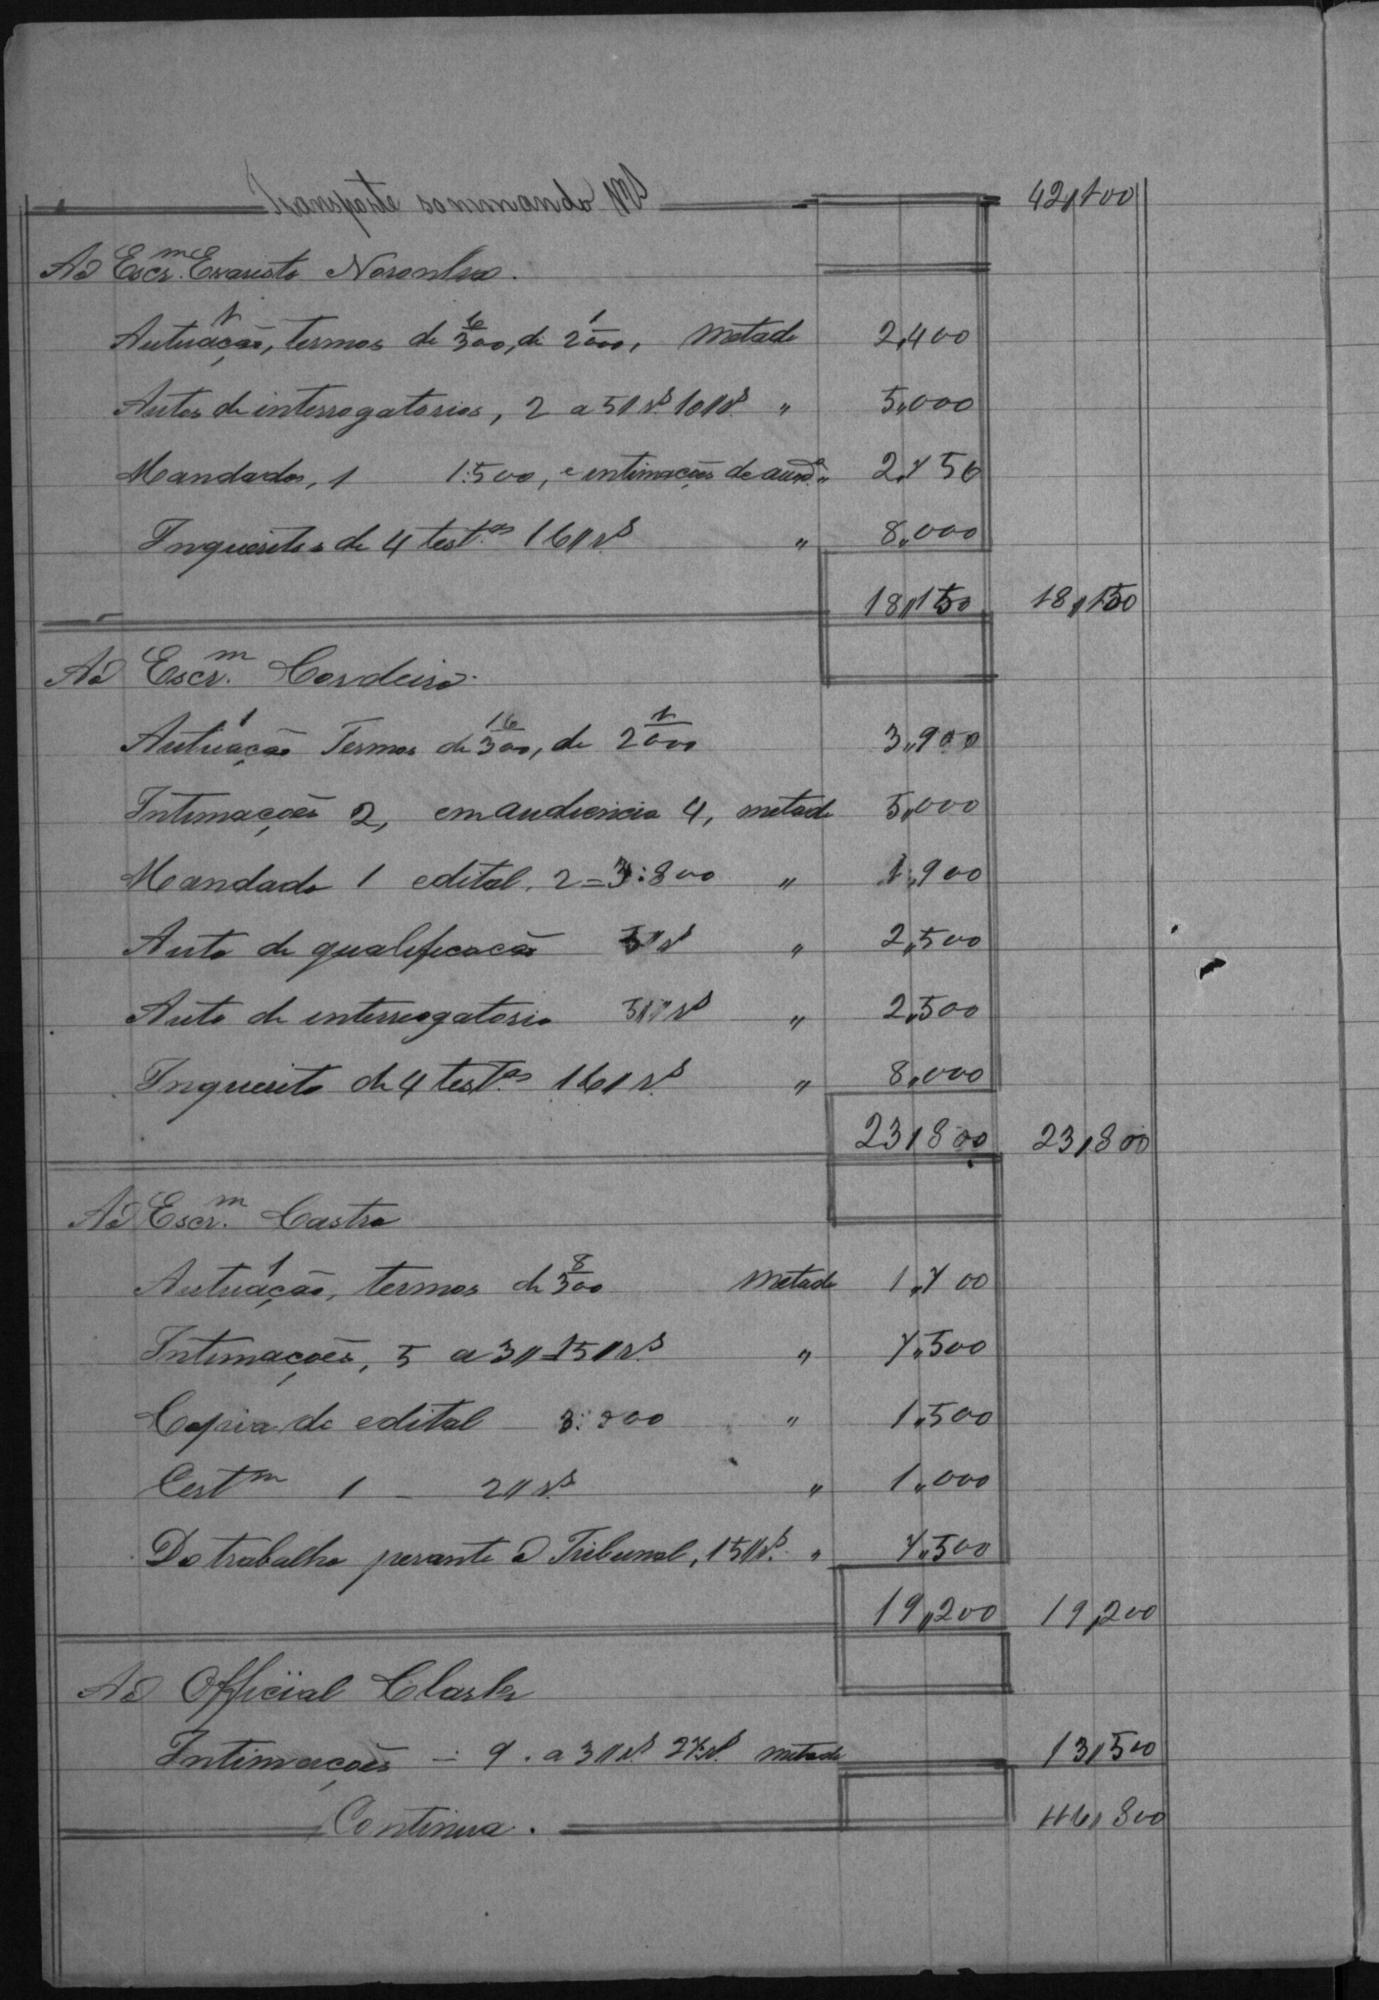 Transporte sommando Rs 42,100
Ao Escr.m Evaristo Noronha.
Autuação, 1 termos de 6/300, de 1/2000, Metade 2,400
Autos de interrogatorios, 2 a 5// rs 10// rs " 5,000
Mandados, 1 1:500, e intimações de aud.a " 2,750
Inqueritos de 4 test.as 16// rs " 8,000
18,150 18,150
Ao Escr.m Cordeiro.
Autuação 1 Termos de 16/300, de 1/2000 3,900
Intimações 2, em audiencia 4, metade 5,000
Mandado 1 edital. 2 = 3:800 " 1,900
Auto de qualificacão 5// rs " 2,500
Auto de interrogatorio 5// rs " 2,500
Inquerito de 4 test.as 16// rs " 8,000
23,800 23,800
Ao Escr.m Castro
Autuação, 1 termos de 8/300 Metade 1,700
Intimações, 5 a 3// 15// rs " 7,500
Copia de edital 3:000 " 1,500
Cert.m 1 – 2// rs " 1,000
Do trabalho perante o Tribunal, 15// rs. " 7,500
19,200 19,200
Ao Official Clark
Intimações – 9. a 3// rs 27 rs. metade 13,500
Continua. 116,800